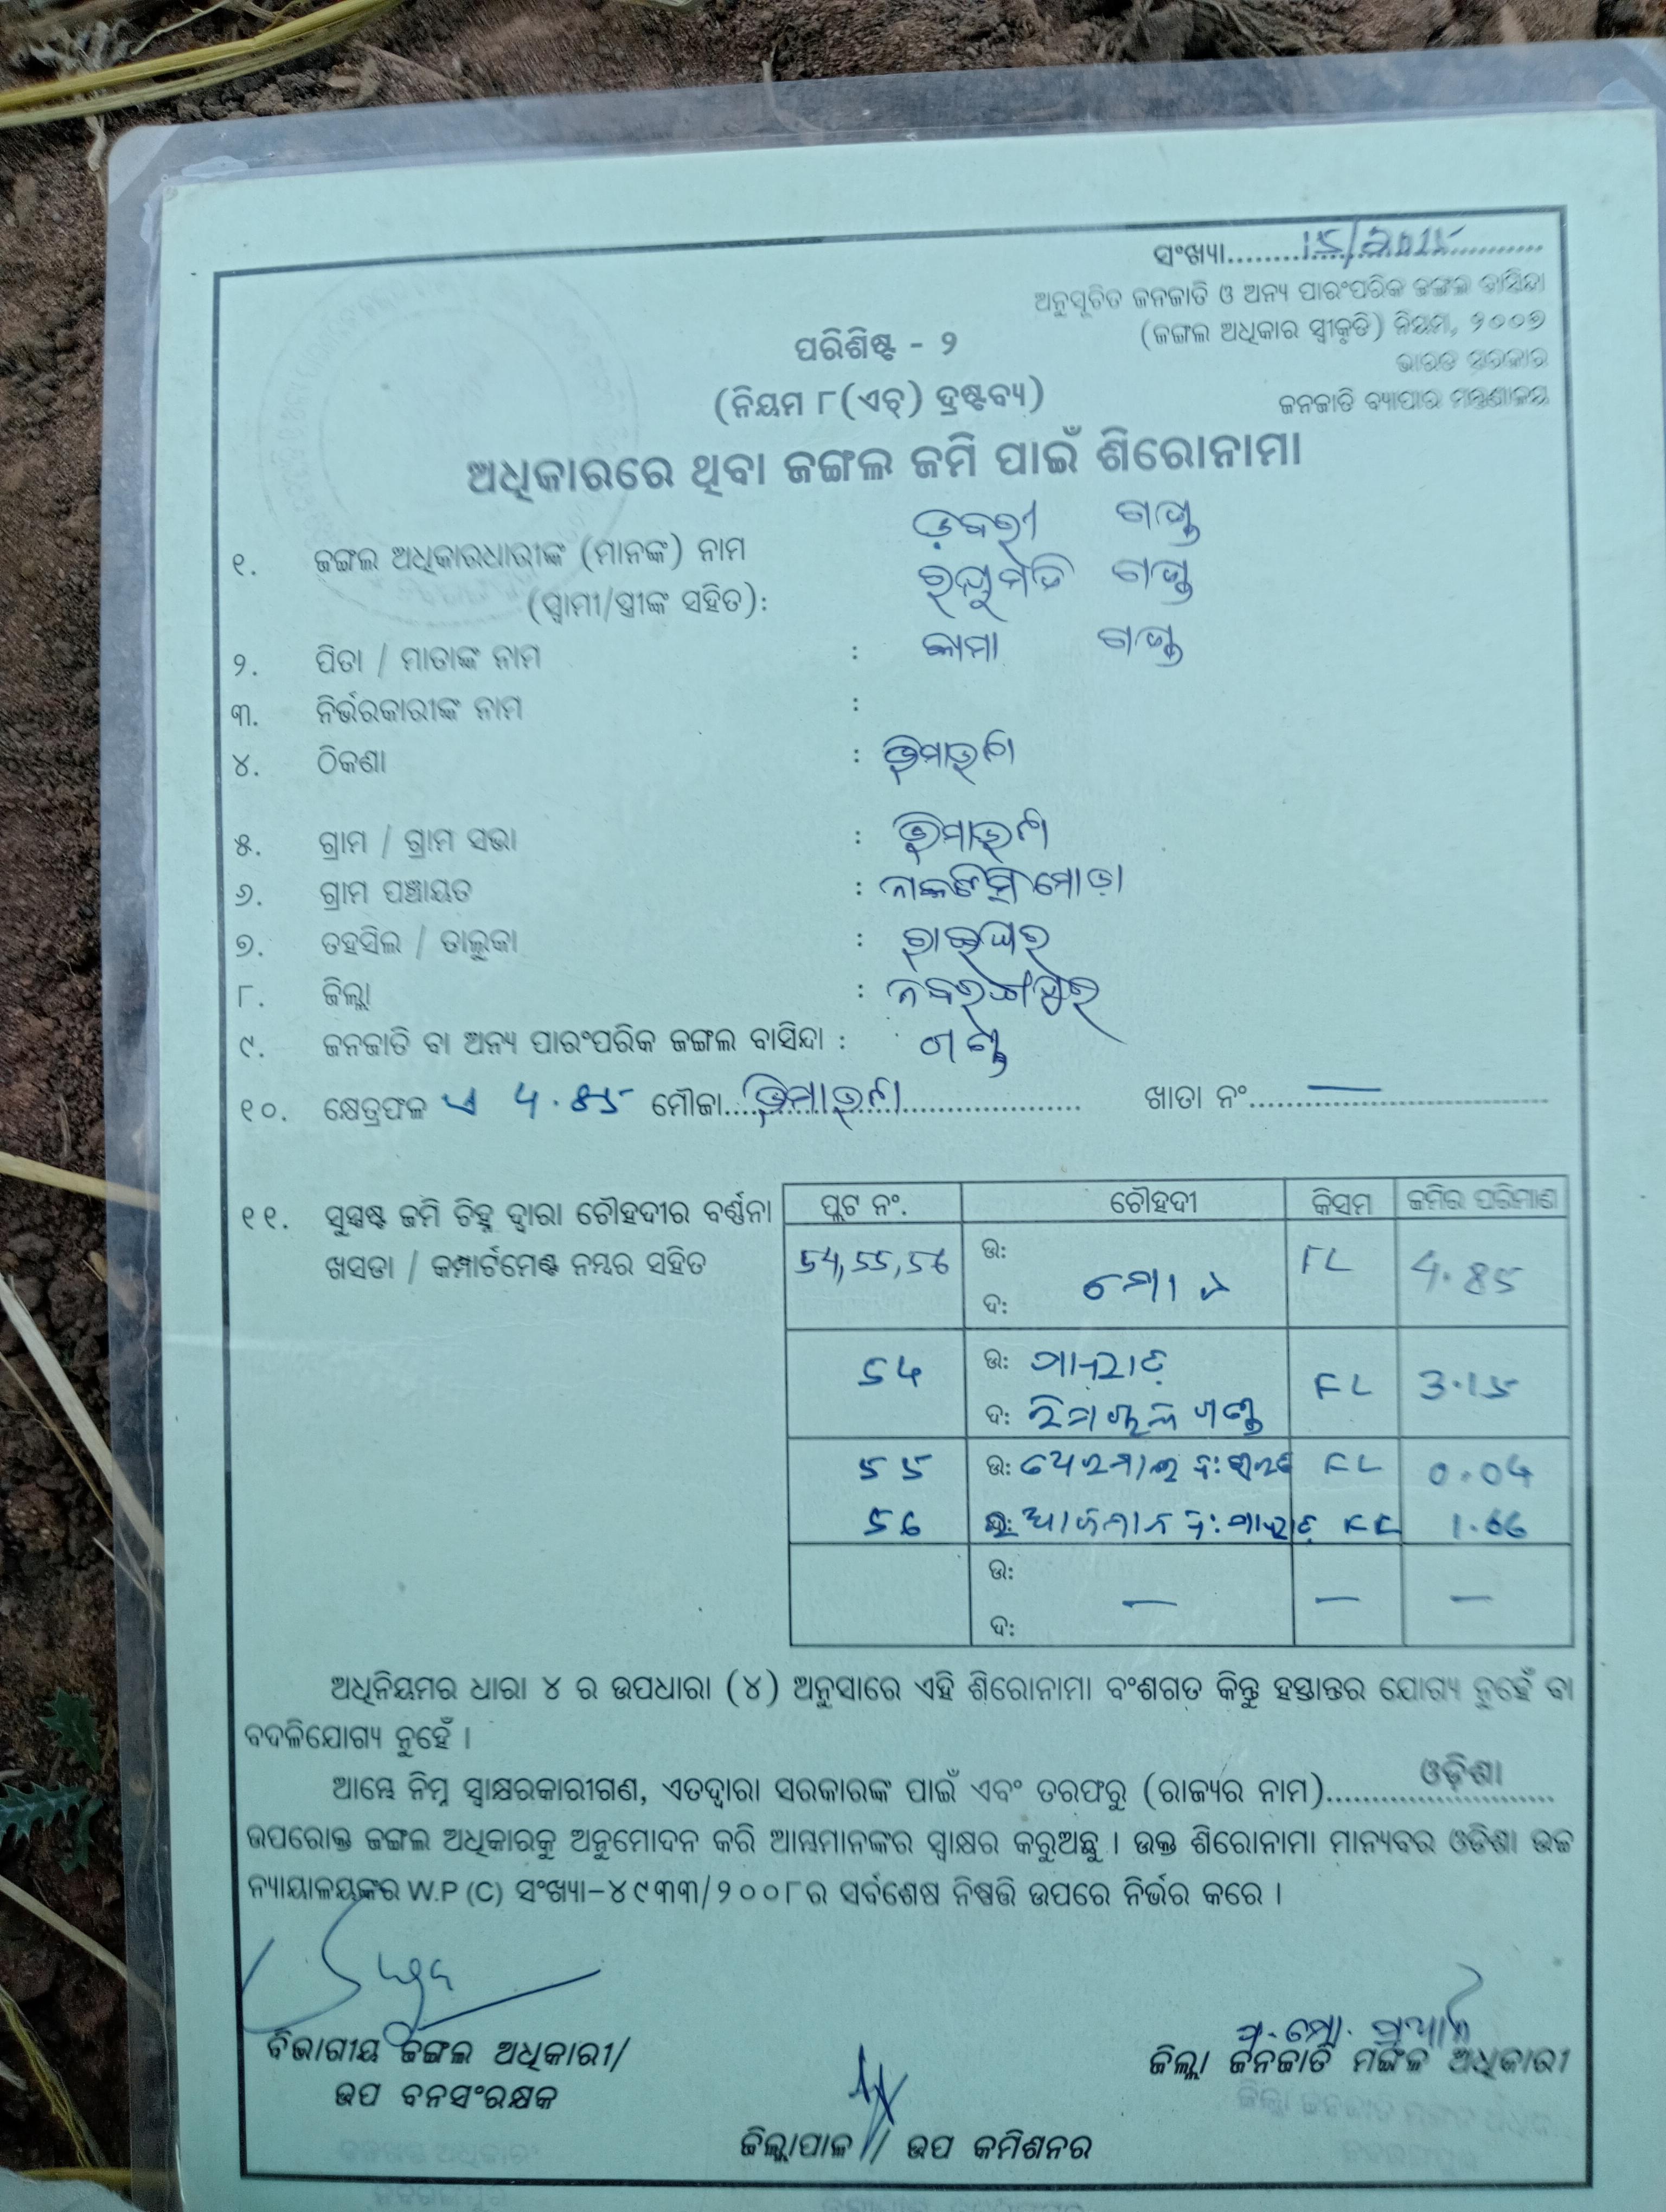 ସଂଖ୍ୟା..........15/2015..........
ଅନୁସୂଚିତ ଜନଜାତି ଓ ଅନ୍ୟ ପାରଂପରିକ ଜଙ୍ଗଲ ବାସିନ୍ଦା
(ଜଙ୍ଗଲ ଅଧିକାର ସ୍ୱୀକୃତି) ନିୟମ, ୨୦୦୭
ଭାରତ ସରକାର
ଜନଜାତି ବ୍ୟାପାର ମନ୍ତ୍ରଣାଳୟ
ପରିଶିଷ୍ଟ - ୨
(ନିୟମ ୮(ଏଚ୍) ଦ୍ରଷ୍ଟବ୍ୟ)
ଅଧିକାରରେ ଥିବା ଜଙ୍ଗଲ ଜମି ପାଇଁ ଶିରୋନାମା
୧. ଜଙ୍ଗଲ ଅଧିକାରଧାରୀଙ୍କ (ମାନଙ୍କ) ନାମ ଡ଼ବରୀ ଗଣ୍ଡ
(ସ୍ୱାମୀ/ସ୍ତ୍ରୀଙ୍କ ସହିତ): ରଘୁମତି ଗଣ୍ଡ
୨. ପିତା / ମାତାଙ୍କ ନାମ : କାମା ଗଣ୍ଡ
୩. ନିର୍ଭରକାରୀଙ୍କ ନାମ :
୪. ଠିକଣା :
୫. ଗ୍ରାମ / ଗ୍ରାମ ସଭା :
୬. ଗ୍ରାମ ପଞ୍ଚାୟତ : ନାକଟିସିମୋଡ଼ା
୭. ତହସିଲ / ତାଲୁକା : ରାଇଘର
୮. ଜିଲ୍ଲା : ନବରଙ୍ଗପୁର
୯. ଜନଜାତି ବା ଅନ୍ୟ ପାରଂପରିକ ଜଙ୍ଗଲ ବାସିନ୍ଦା : ଗଣ୍ଡ
୧୦. କ୍ଷେତ୍ରଫଳ ଏ 4.85 ମୌଜା.......... ଖାତା ନଂ..........—..........
୧୧. ସୁସ୍ପଷ୍ଟ ଜମି ଚିହ୍ନ ଦ୍ୱାରା ଚୌହଦୀର ବର୍ଣ୍ଣନା
ଖସଡା / କମ୍ପାର୍ଟମେଣ୍ଟ ନମ୍ବର ସହିତ
ପ୍ଲଟ ନଂ. ଚୌହଦୀ କିସମ ଜମିର ପରିମାଣ
54,55,56 ଉ: ଦ: ମୋଟ FL 4.85
54 ଉ: ପାହାଡ଼ FL 3.15
ଦ: ଗଣ୍ଡ
55 ଉ: FL 0.04
56 ଉ: ଦ: ପାହାଡ଼ FL 1.66
ଉ:
ଦ: — — —
ଅଧିନିୟମର ଧାରା ୪ ର ଉପଧାରା (୪) ଅନୁସାରେ ଏହି ଶିରୋନାମା ବଂଶଗତ କିନ୍ତୁ ହସ୍ତାନ୍ତର ଯୋଗ୍ୟ ନୁହେଁ ବା
ବଦଳିଯୋଗ୍ୟ ନୁହେଁ ।
ଆମ୍ଭେ ନିମ୍ନ ସ୍ୱାକ୍ଷରକାରୀଗଣ, ଏତଦ୍ୱାରା ସରକାରଙ୍କ ପାଇଁ ଏବଂ ତରଫରୁ (ରାଜ୍ୟର ନାମ)..........ଓଡ଼ିଶା..........
ଉପରୋକ୍ତ ଜଙ୍ଗଲ ଅଧିକାରକୁ ଅନୁମୋଦନ କରି ଆମ୍ଭମାନଙ୍କର ସ୍ୱାକ୍ଷର କରୁଅଛୁ । ଉକ୍ତ ଶିରୋନାମା ମାନ୍ୟବର ଓଡିଶା ଉଚ୍ଚ
ନ୍ୟାୟାଳୟଙ୍କର W.P (C) ସଂଖ୍ୟା-୪୯୩୩/୨୦୦୮ର ସର୍ବଶେଷ ନିଷ୍ପତ୍ତି ଉପରେ ନିର୍ଭର କରେ ।
ବିଭାଗୀୟ ଜଙ୍ଗଲ ଅଧିକାରୀ/
ଉପ ବନସଂରକ୍ଷକ
ଜିଲ୍ଲା ଜନଜାତି ମଙ୍ଗଳ ଅଧିକାରୀ
ଜିଲ୍ଲାପାଳ / ଉପ କମିଶନର